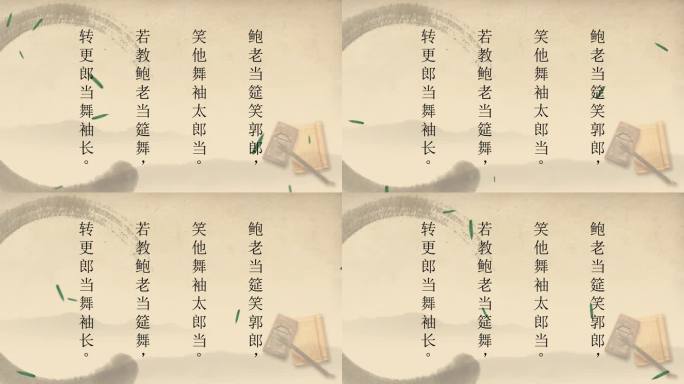 鲍老当筵笑郭郎，
笑他舞袖太郎当。
若教鲍老当筵舞，
转更郎当舞袖长。
鲍老当筵笑郭郎，
笑他舞袖太郎当。
若教鲍老当筵舞，
转更郎当舞袖长。
鲍老当筵笑郭郎，
笑他舞袖太郎当。
若教鲍老当筵舞，
转更郎当舞袖长。
鲍老当筵笑郭郎，
笑他舞袖太郎当。
若教鲍老当筵舞，
转更郎当舞袖长。